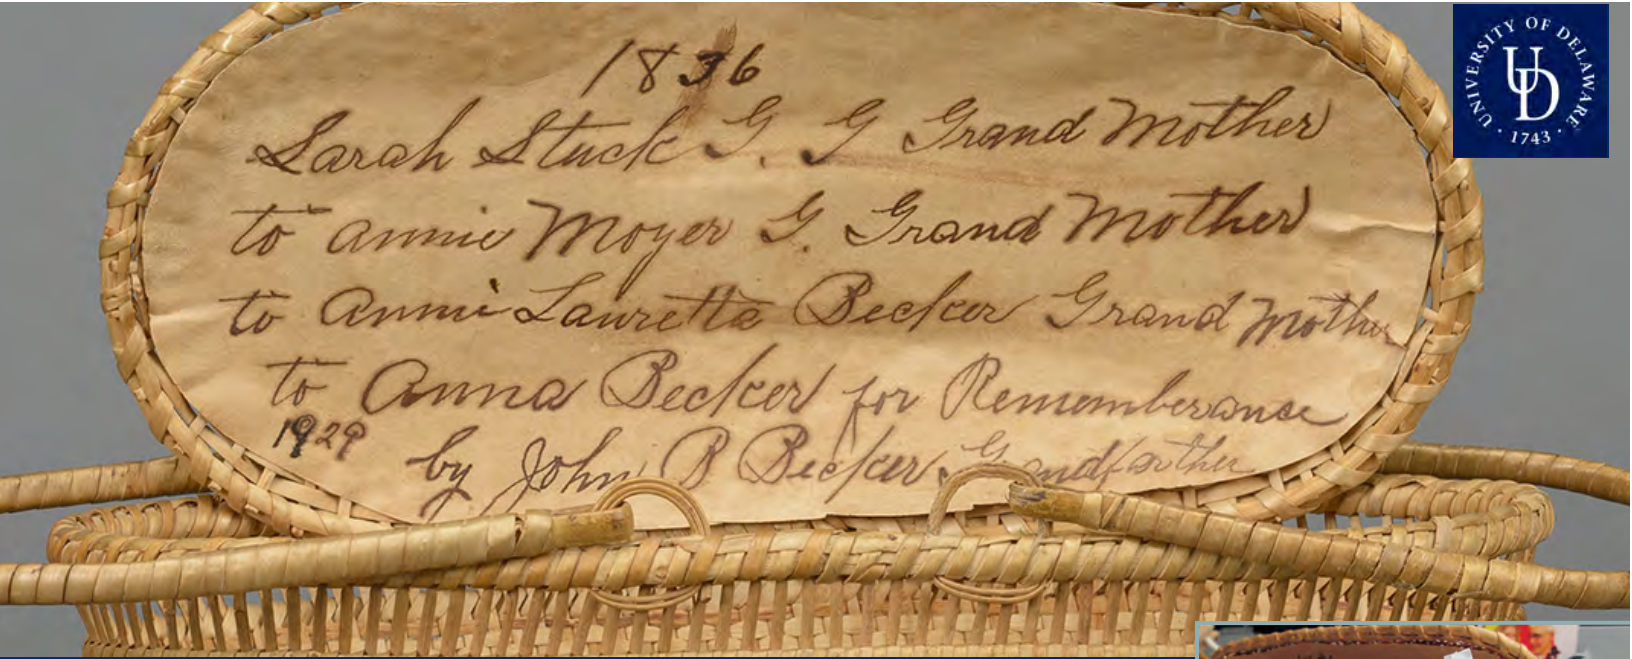 1836
Sarah Stuck G. G Grand Mother
to annie Moyer G. Grand Mother
to Annie Lauretta Becker Grand Mother
to Anna Becker for Rememberance
1929
by John B Becker Grandfather
UNIVERSITY OF DELAWARE
UD
· 1743 ·